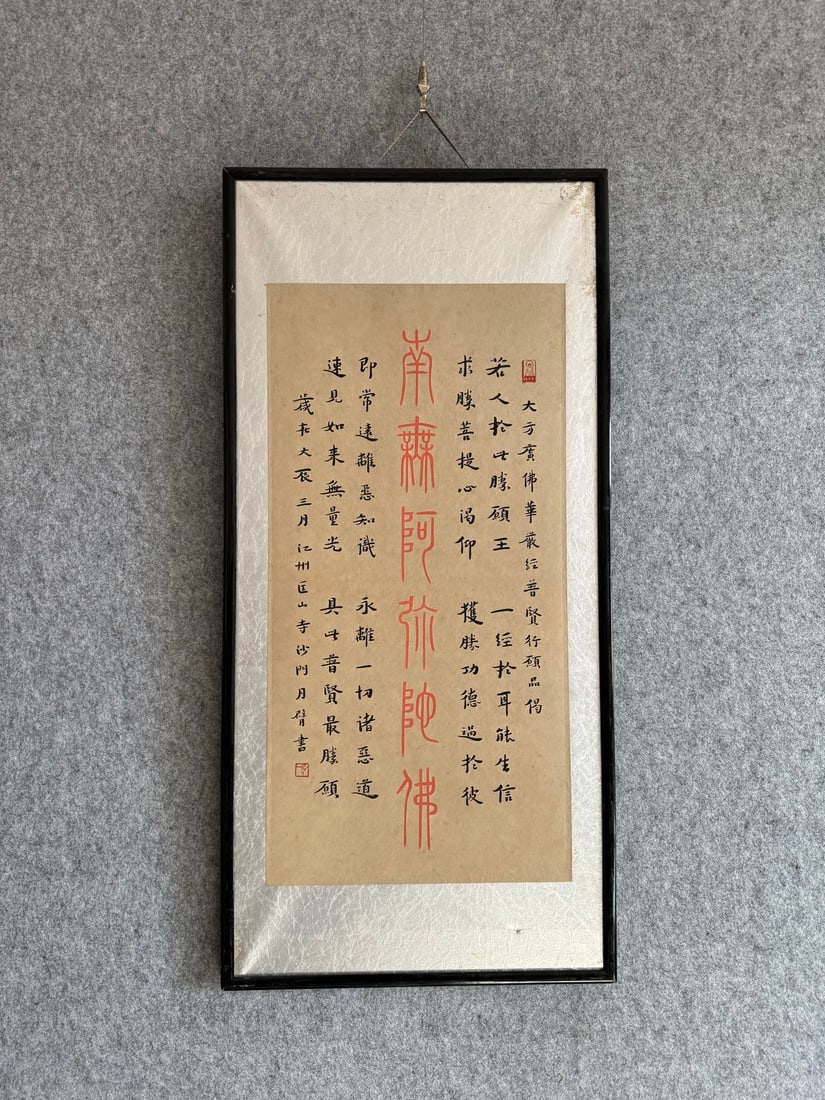 大方廣佛華嚴經普賢行願品偈
若人於此勝願王 一經於耳能生信
求勝菩提心渴仰 獲勝功德過於彼
南無阿弥陀佛
即常遠離惡知識 永離一切诸惡道
速見如来無量光 具此普賢最勝願
歲在大辰三月江州匡山寺沙門月臂書